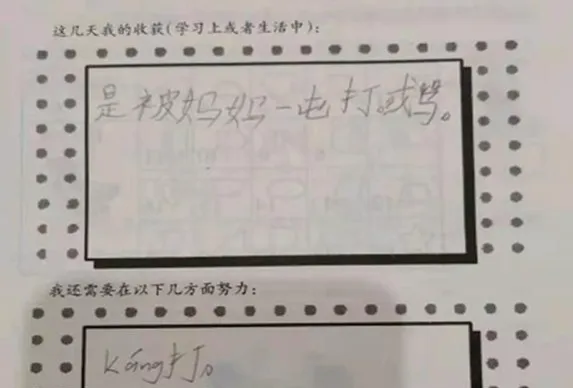 这几天我的收获(学习上或者生活中):
是被妈妈一屯打或骂。
我还需要在以下几方面努力:
káng打。